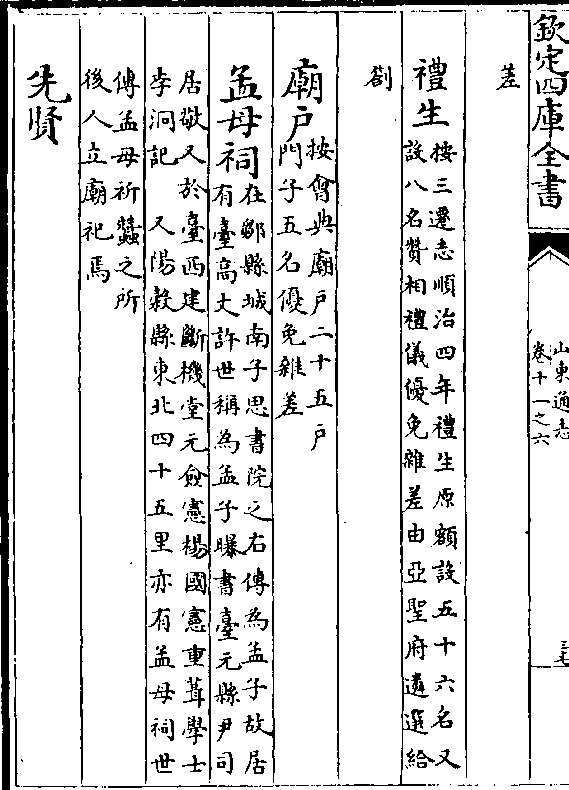 欽定四庫全書
山東通志
卷十一之六
三七
差
禮生
按三遷志順治四年禮生原額設五十六名又
設八名贊相禮儀優免雜差由亞聖府遴選給
劄
廟戶
按會典廟戶二十五戶
門子五名優免雜差
孟母祠
在鄒縣城南子思書院之右傳為孟子故居
有臺高丈許世稱為孟子曝書臺元縣尹司
居敬又於臺西建斷機堂元僉憲楊國憲重葺學士
李泂記 又陽穀縣東北四十五里亦有孟母祠世
傳孟母祈蠶之所
後人立廟祀焉
先賢